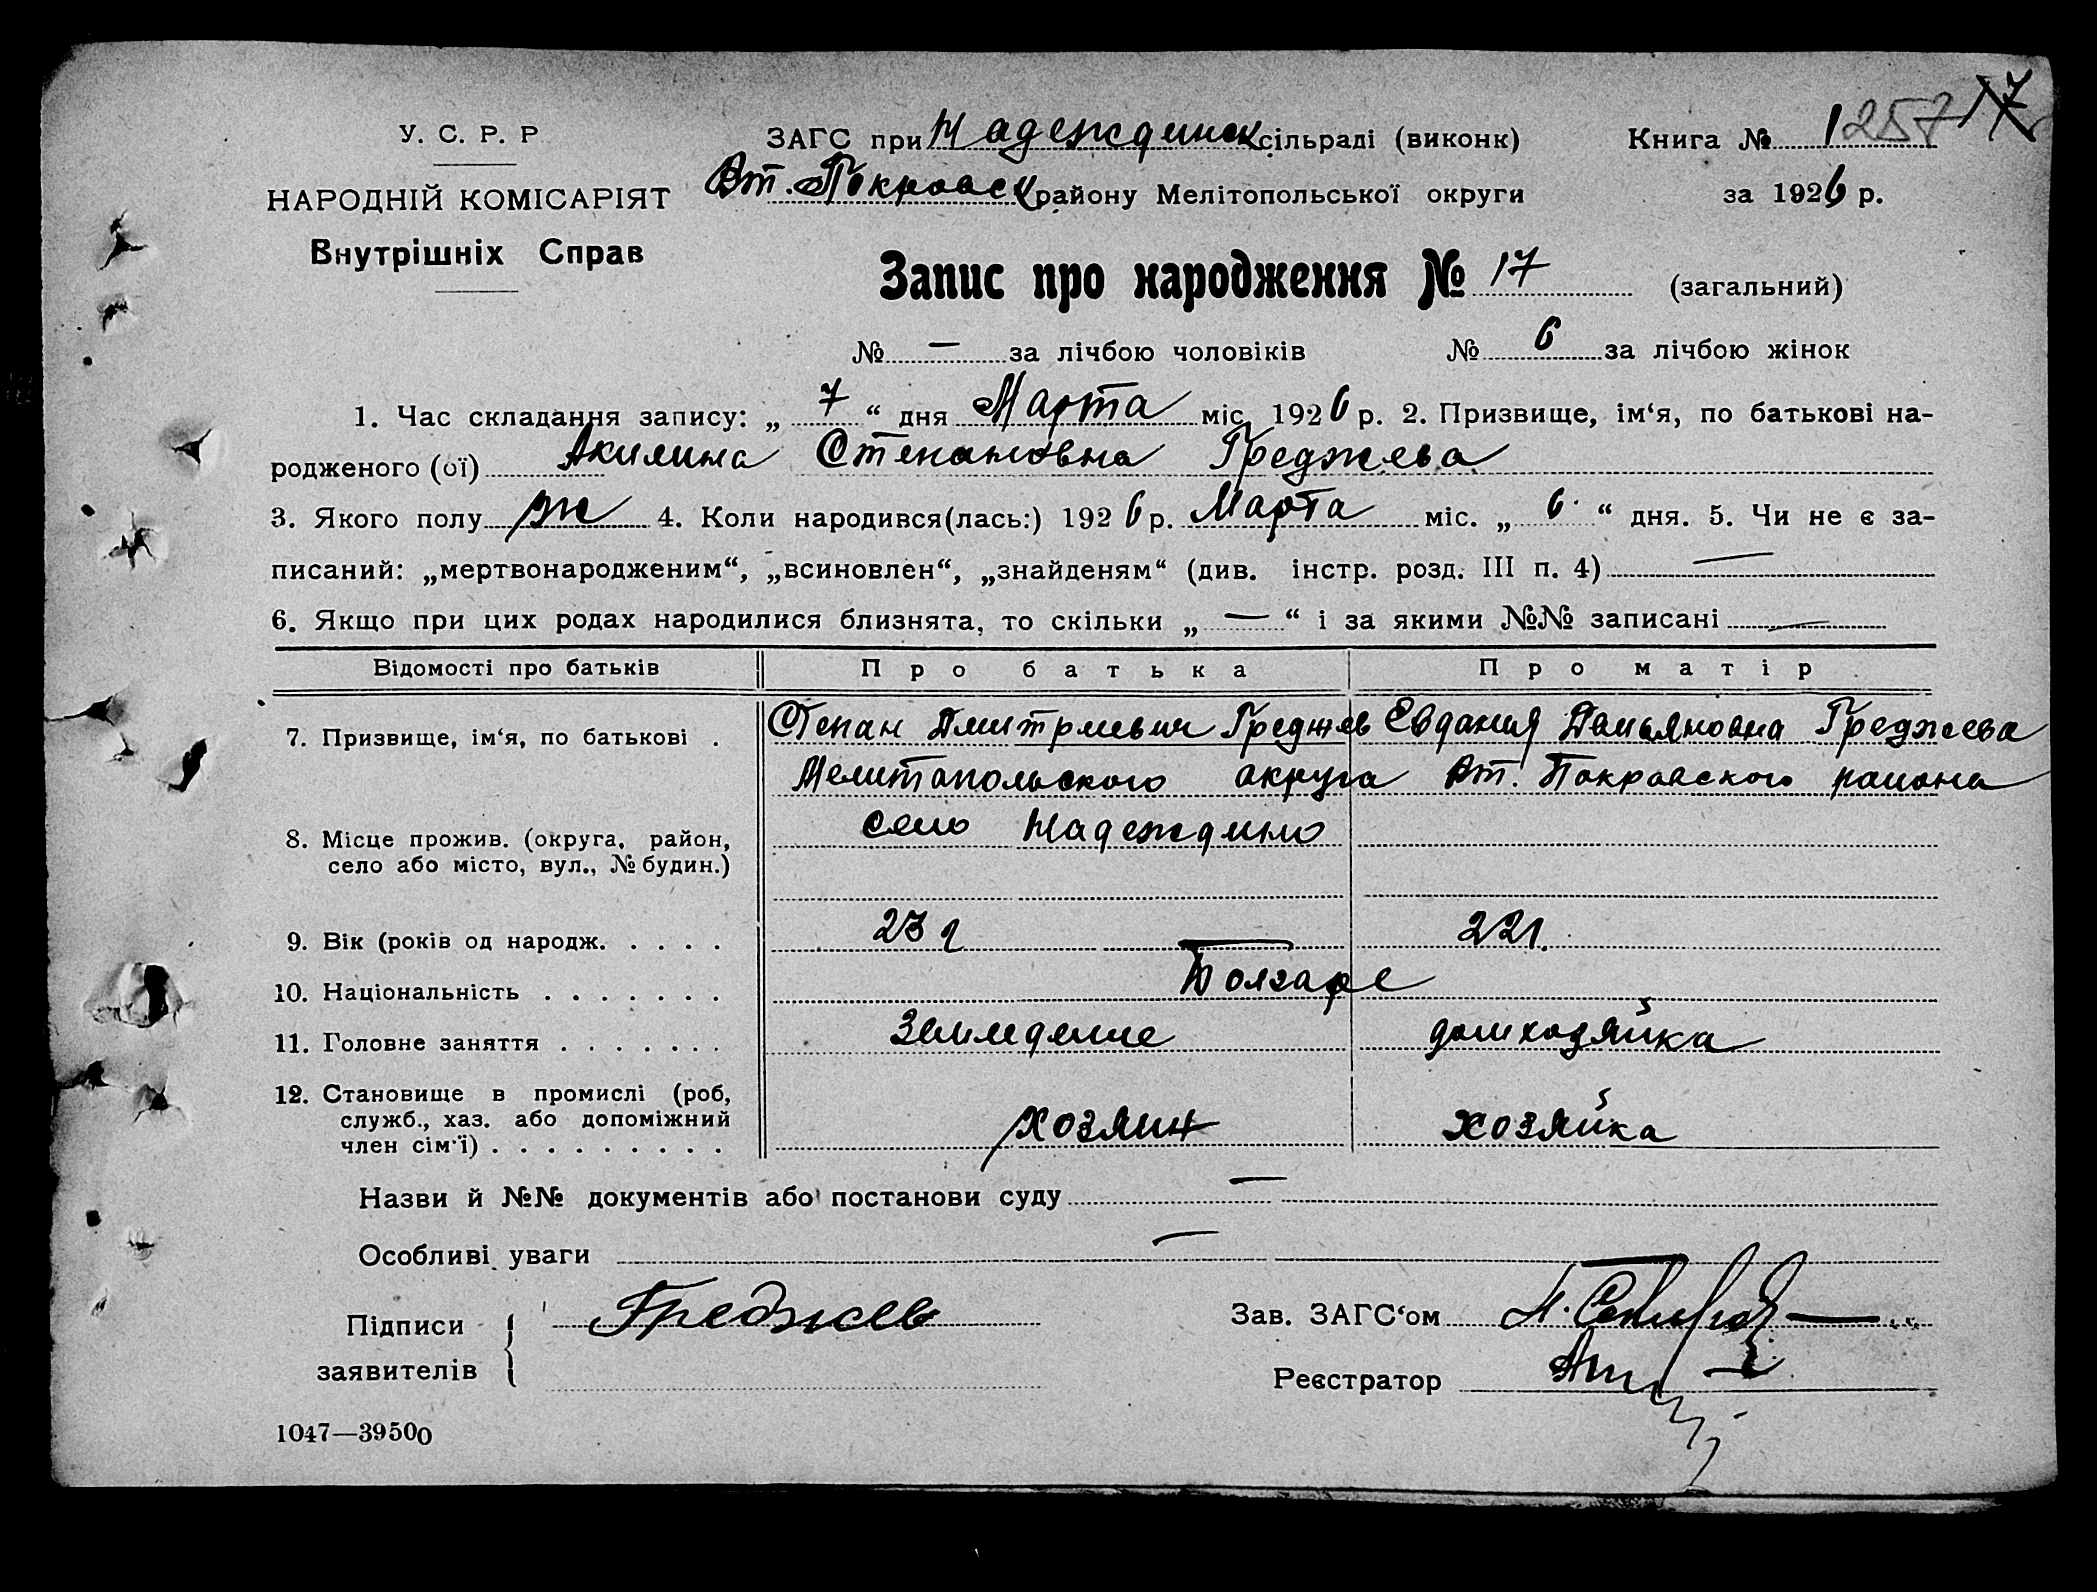 У. С. Р. Р
НАРОДНІЙ КОМІСАРІЯТ
Внутрішніх Справ
ЗАГС при Надеждинск сільраді (виконк)
Вт. Покровск району Мелітопольської округи
Книга № 1 257 17
за 1926 р.
Запис про народження № 17 (загальний)
№ — за лічбою чоловіків № 6 за лічбою жінок
1. Час складання запису: „ 7 “ дня Марта міс. 1926 р. 2. Призвище, ім‘я, по батькові на-
родженого (ої) Акилина Степановна Греджева
3. Якого полу ж 4. Коли народився(лась:) 1926 р. Марта міс. „ 6 “ дня. 5. Чи не є за-
писаний: „мертвонародженим“, „всиновлен“, „знайденям“ (див. інстр. розд. III п. 4) —
6. Якщо при цих родах народилися близнята, то скільки „ — “ і за якими №№ записані —
Відомості про батьків Про батька Про матір
7. Призвище, ім‘я, по батькові . Степан Дмитриевич Греджев Евдакия Демьяновна Греджева
Мелитапольского акруга Вт. Покравского района
8. Місце прожив. (округа, район, село Надеждино
село або місто, вул., № будин.)
9. Вік (років од народж. . . . . 23 г 22 г.
10. Національність . . . . . . . Болгаре
11. Головне заняття . . . . . . . Земледелие домхозяйка
12. Становище в промислі (роб,
служб., хаз. або допоміжний
член сім‘ї) . . . . . . . . . хозяин хозяйка
Назви й №№ документів або постанови суду —
Особливі уваги —
Підписи
заявителів
Греджев
Зав. ЗАГС‘ом
Реєстратор
1047—39500